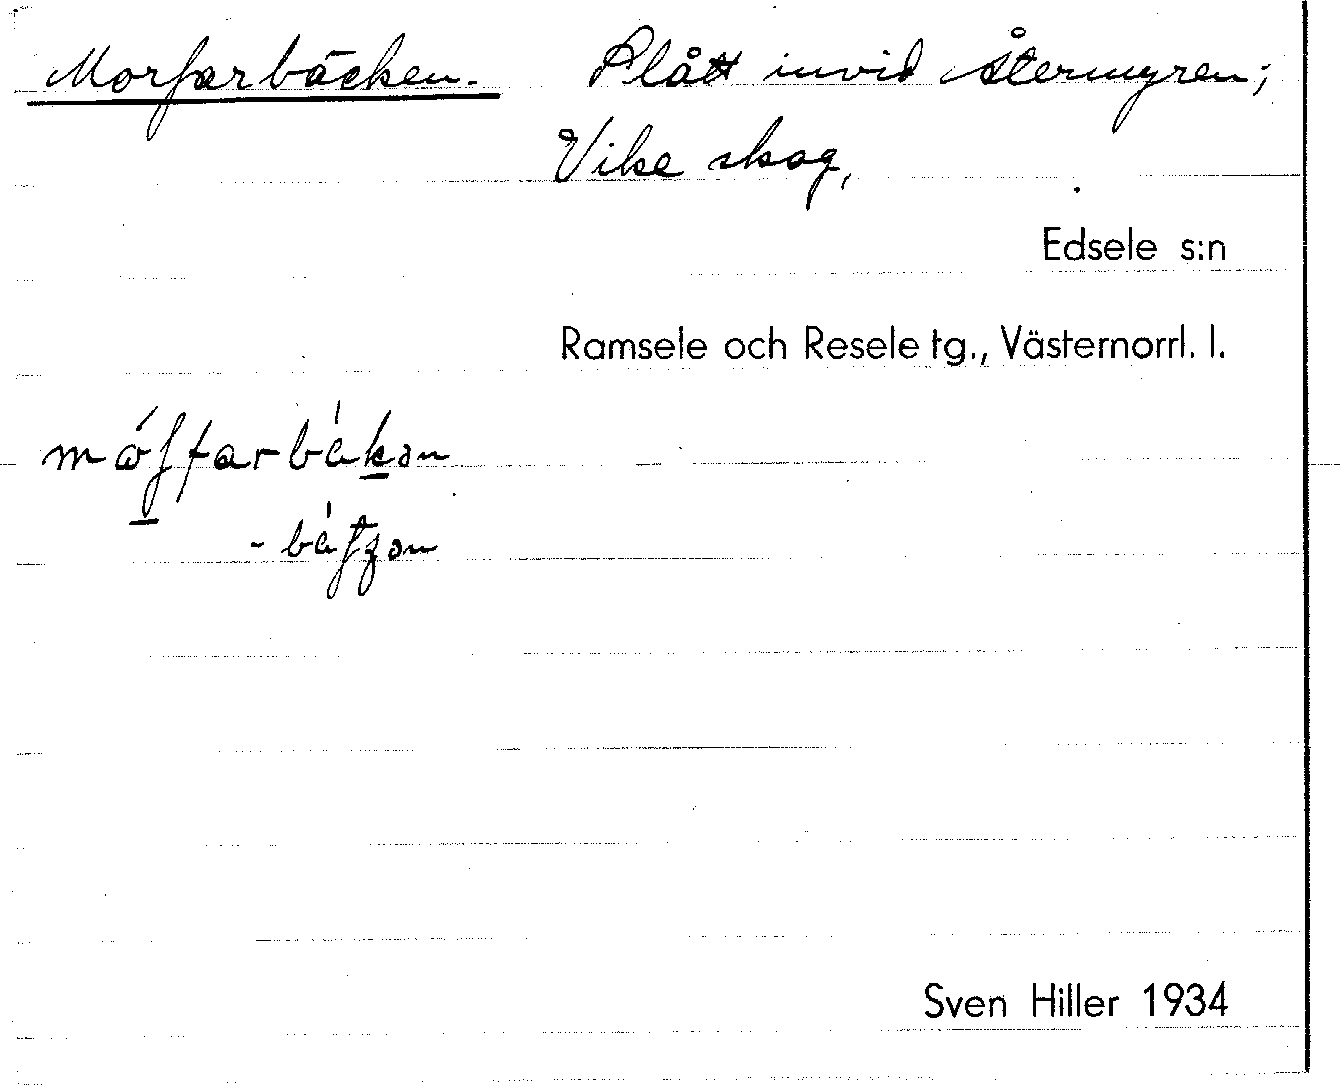 Morfarbäcken. Plått invid Återmyren;
Vike skog,
Edsele s:n
Ramsele och Resele tg., Västernorrl. l.
Sven Hiller 1934